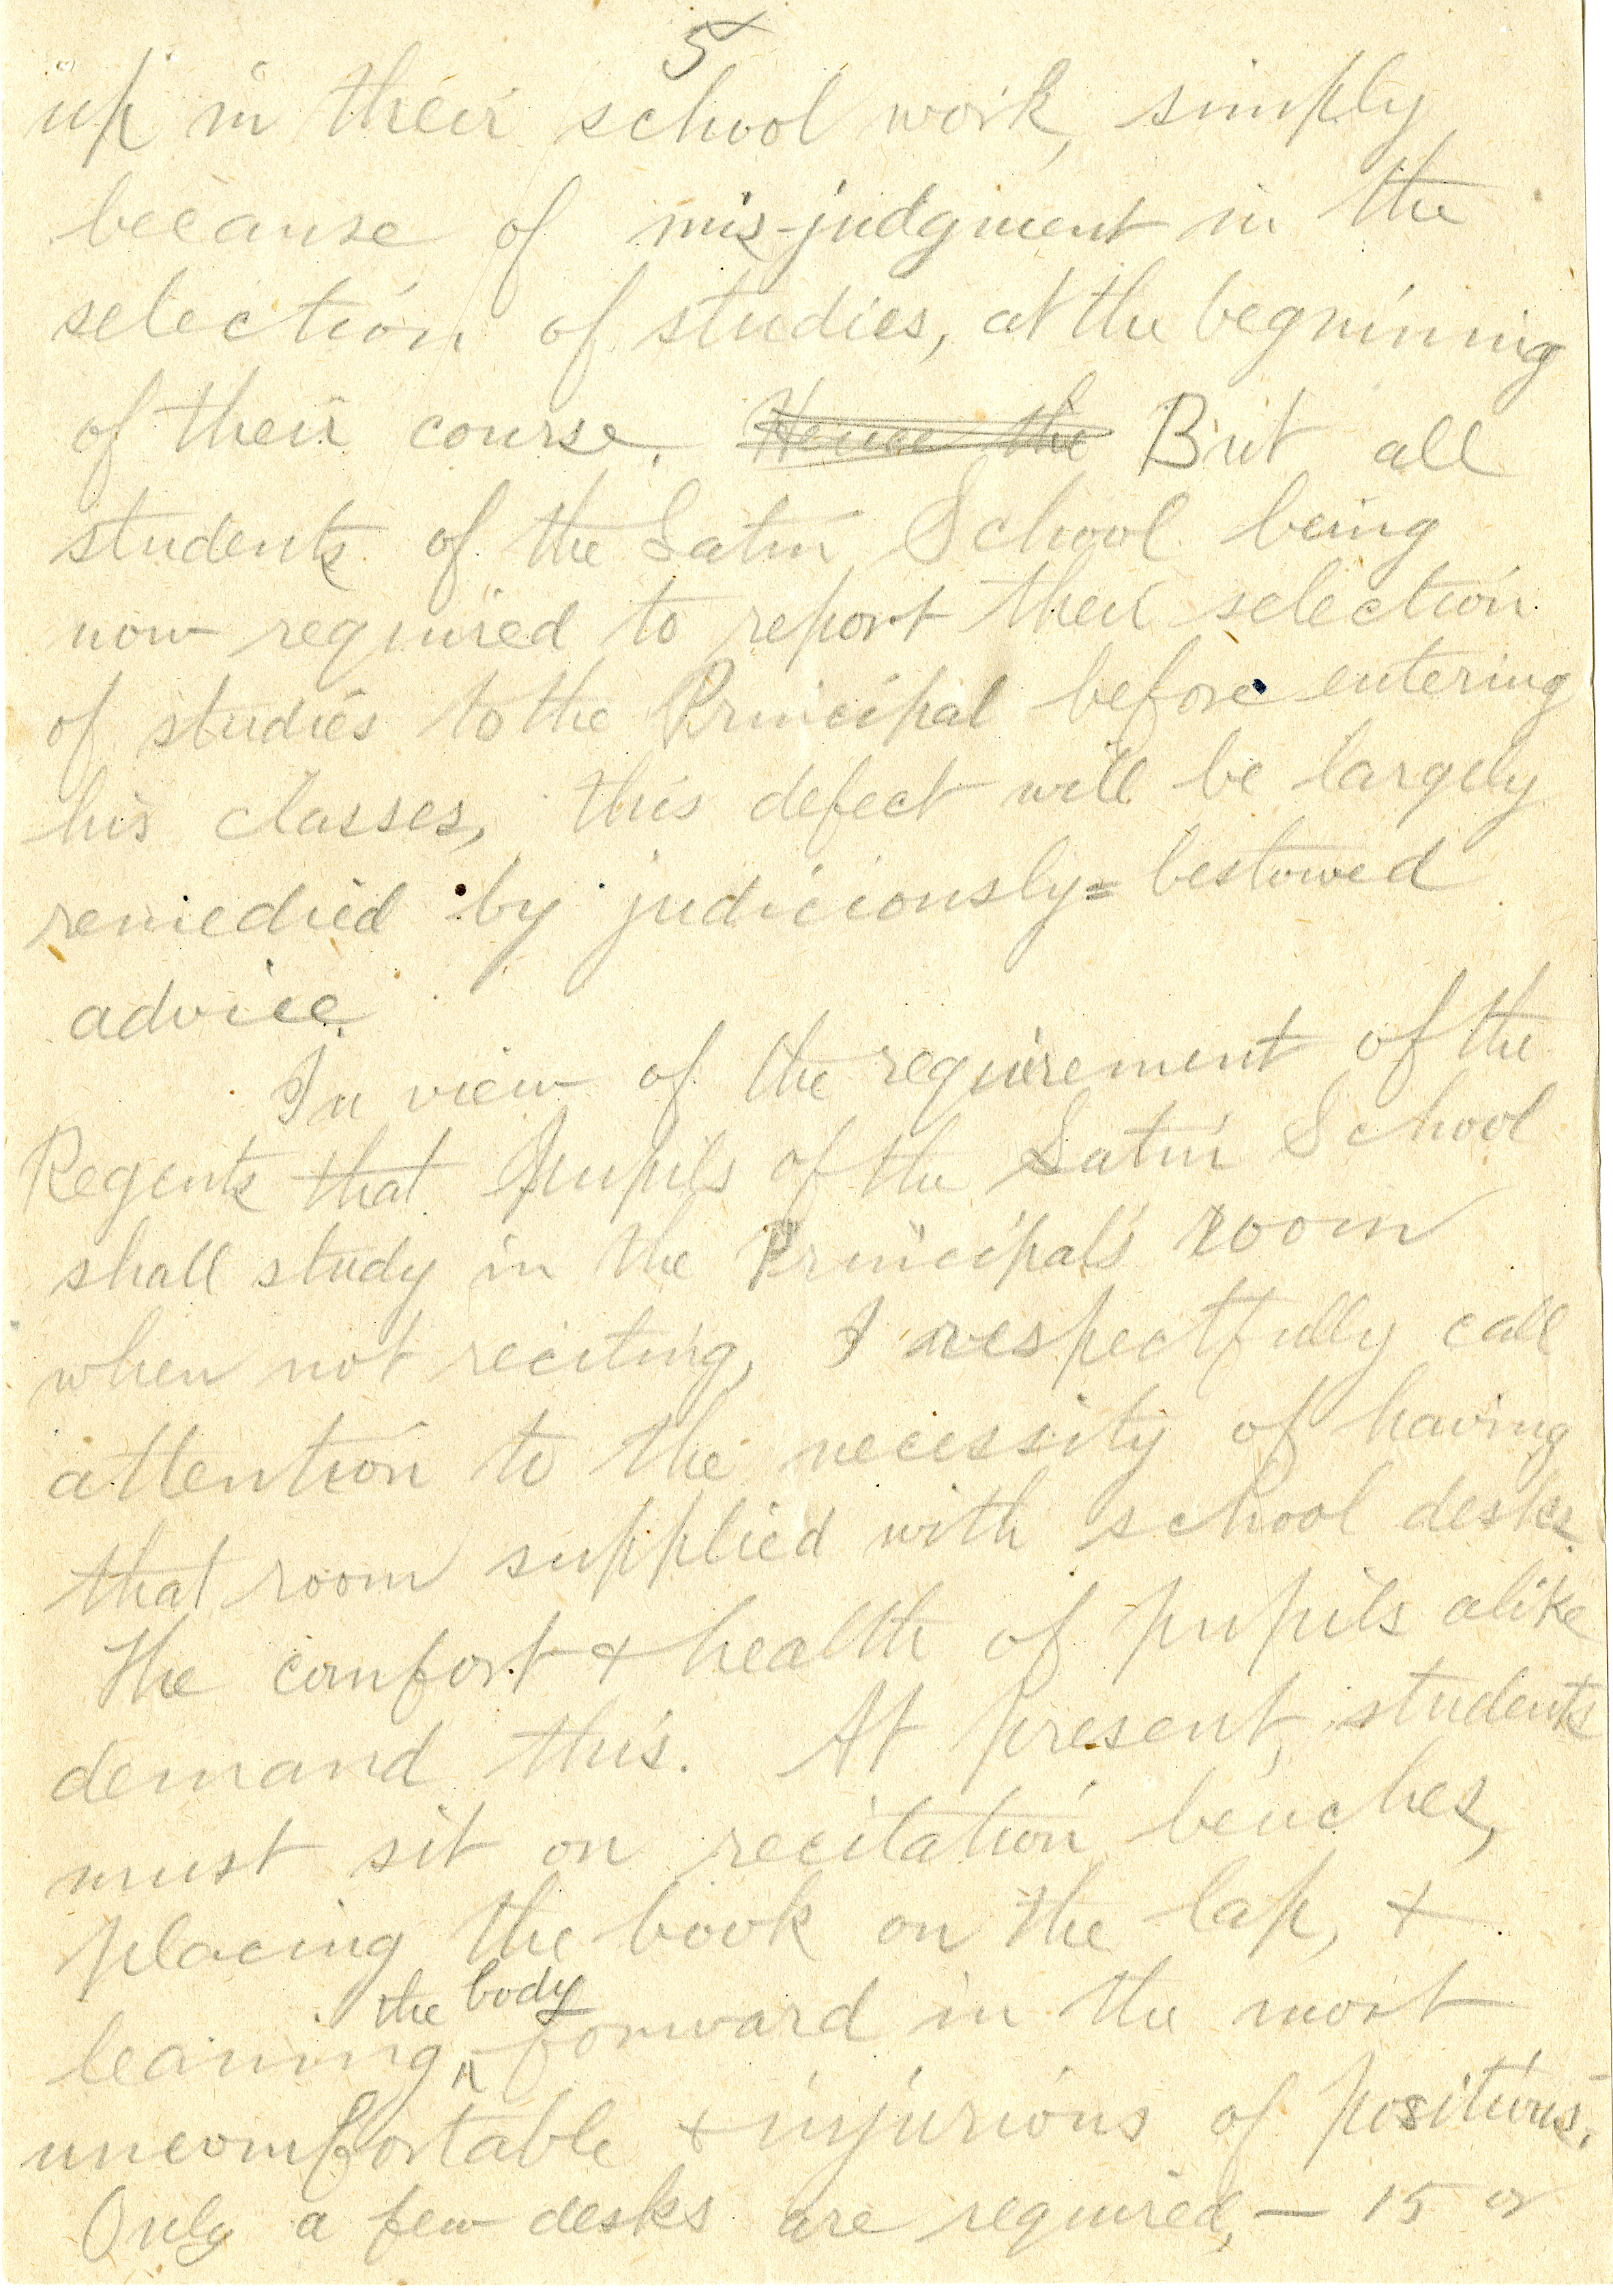 5
up in their school work, simply
because of mis-judgment in the
selection of studies, at the beginning
of their course. Hence the But all
students of the Latin School being
now required to report their selection
of studies to the Principal before entering
his classes, this defect will be largely
remedied by judiciously=bestowed
advice.
In view of the requirement of the
Regents that pupils of the Latin School
shall study in the Principal's room
when not reciting, I respectfully call
attention to the necessity of having
that room supplied with school desks.
The comfort & health of pupils alike
demand this. At present, students
must sit on recitation benches,
placing the book on the lap, &
the body
leaning forward in the most
uncomfortable & injurious of positions.
Only a few desks are required, — 15 or